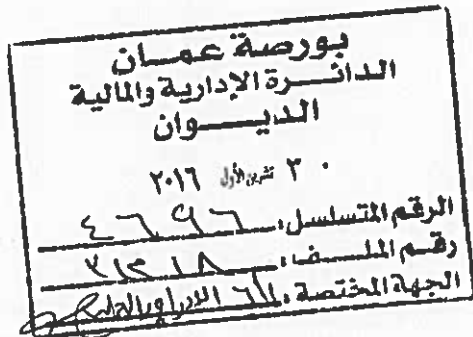 بورصة عمان
الدائرة الإدارية والمالية
الديوان
٣٠ تشرين الأول ٢٠١٦
الرقم المتسلسل: ٤٦٩٦
رقم الملف:
الجهة المختصة: